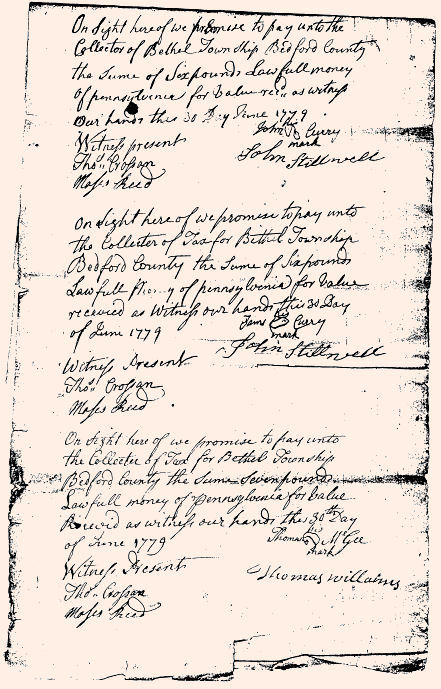 On Sight here of we promise to pay unto the
Collector of Bethel Township Bedford County
the Sume of Sixpounds Lawfull money
of pennsylvenia for Value recd as witness
Our hands this 30 Day June 1779
John his Curry
mark
Witness present
John Stillwell
Thos Crossan
Moses Reed
On Sight here of we promise to pay unto
the Collecter of Tax for Bethel Township
Bedford County the Sume of Sixpounds
Lawfull of pennsylvenia for Value
received as Witness our hands this 30 Day
of June 1779
his
Curry
mark
John Stillwell
Witness Present
Thos Crossan
Moses Reed
On Sight here of we promise to pay unto
the Collecter of Tax for Bethel Township
Bedford County the Sume Sevenpounds
Lawfull money of pennsylvania for Value
Recevied as witness our hands the 30th Day
of June 1779
his
Thomas McGee
mark
Witness Present
Thomas willaims
Thos Crossan
Moses Reed